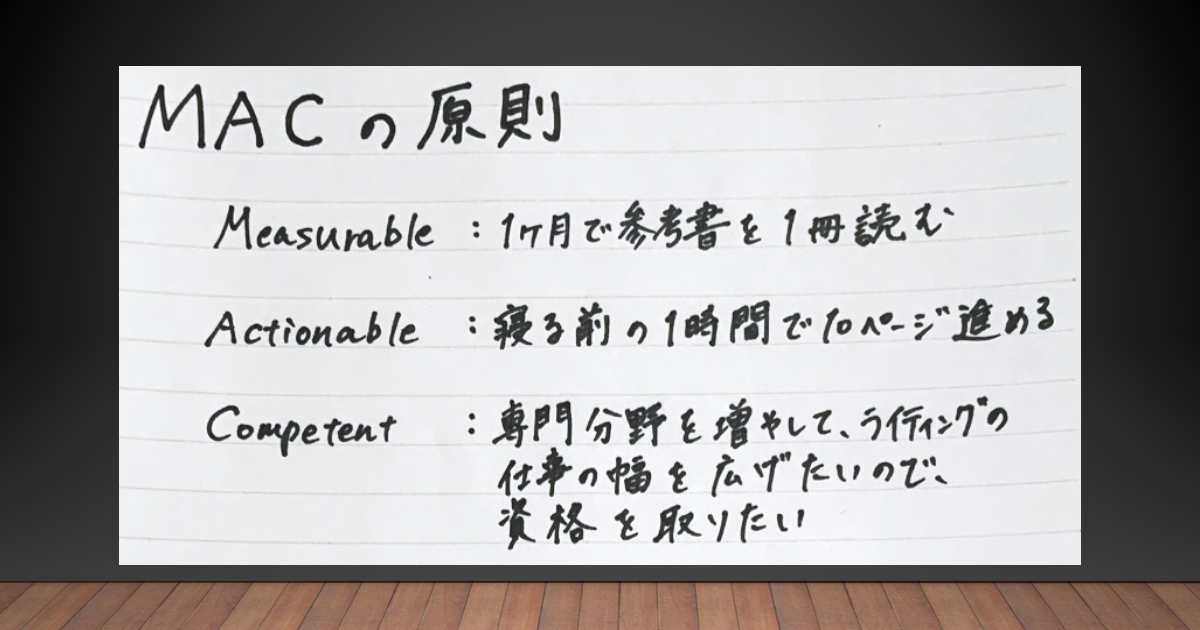 MACの原則
Measurable：1ヶ月で参考書を1冊読む
Actionable：寝る前の1時間で10ページ進める
Competent：専門分野を増やして、ライティングの
仕事の幅を広げたいので、
資格を取りたい